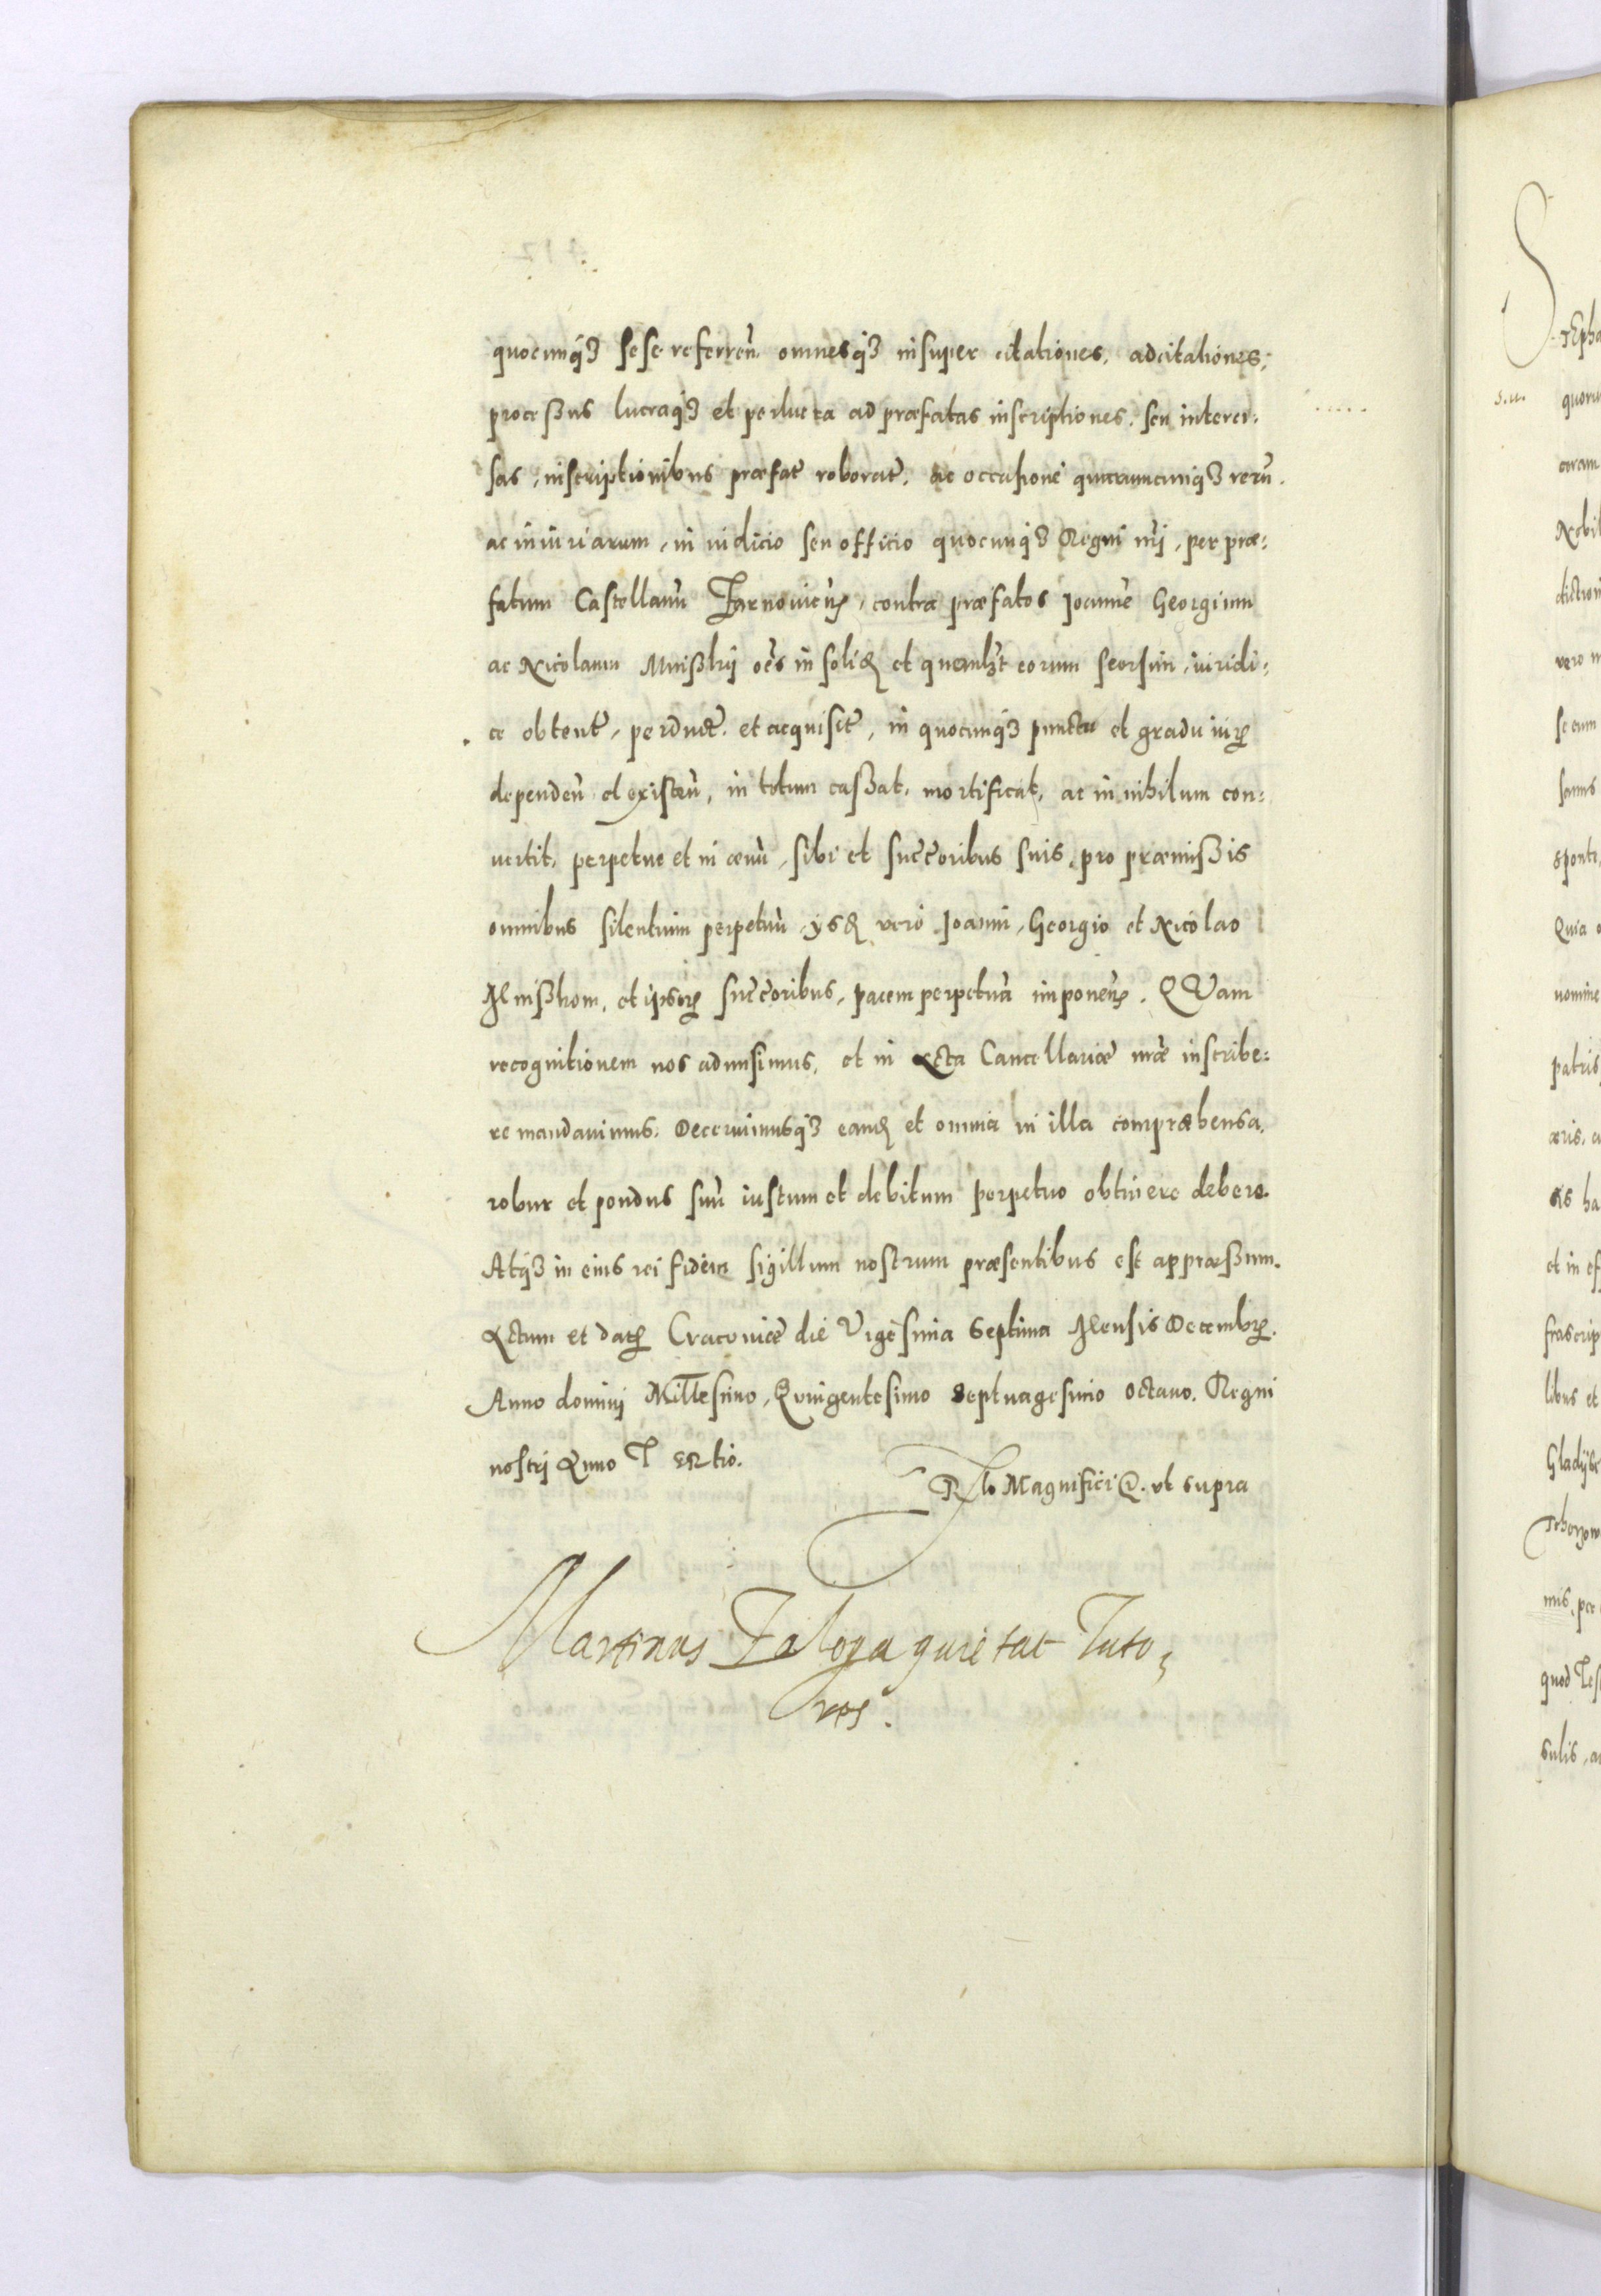 quocunq3 sese referren̄. omnesq3 insuper citationes, adcitationes,
processus lucraq3 et perlucra ad præfatas inscriptiones, seu interci:
sas, inscriptionibus præfat̄ roborat̄, ac occasione quarumcunq3 rerū.
ac iniuriarum, in iudicio seu officio quocunq3 Regni nr̄j, per præ:
fatum Castellanū Tarnovien̄, contra præfatos Joannē Georgium
ac Nicolaum Mnißkij oēs in solid et quemlibet eorum seorsim, iuridi:
ce obtent̄, perduct̄. et acquisit̄, in quocunq3 puncto et gradu iuris
dependen̄ et existen̄, in totum caßat, mortificat, ac in nihilum con:
vertit, perpetuo et in ævū, sibi et succ̄oribus suis, pro præmißis
omnibus silentium perpetuū, ysd vero Joanni, Georgio et Nicolao
Mnißkom, et ipsorum succ̄oribus, pacem perpetuā imponen̄. QVam
recognitionem nos admisimus, et in Acta Cancellariæ nr̄æ inscribe:
re mandavimus. Decernimusq3 eand et omnia in illa compræhensa,
robur et pondus suū iustum et debitum perpetuo obtinere debere.
Atq3 in eius rei fidem sigillum nostrum præsentibus est appræßum.
Actum et dat Cracoviæ die Vigesima Septima Mensis Decembr.
Anno dominj Millesimo, Quingentesimo Septuagesimo octavo. Regni
nostrj Anno TERtio.
Rlo Magnifici &. ut supra
Martinus Zaloga quietat Tuto:
res.